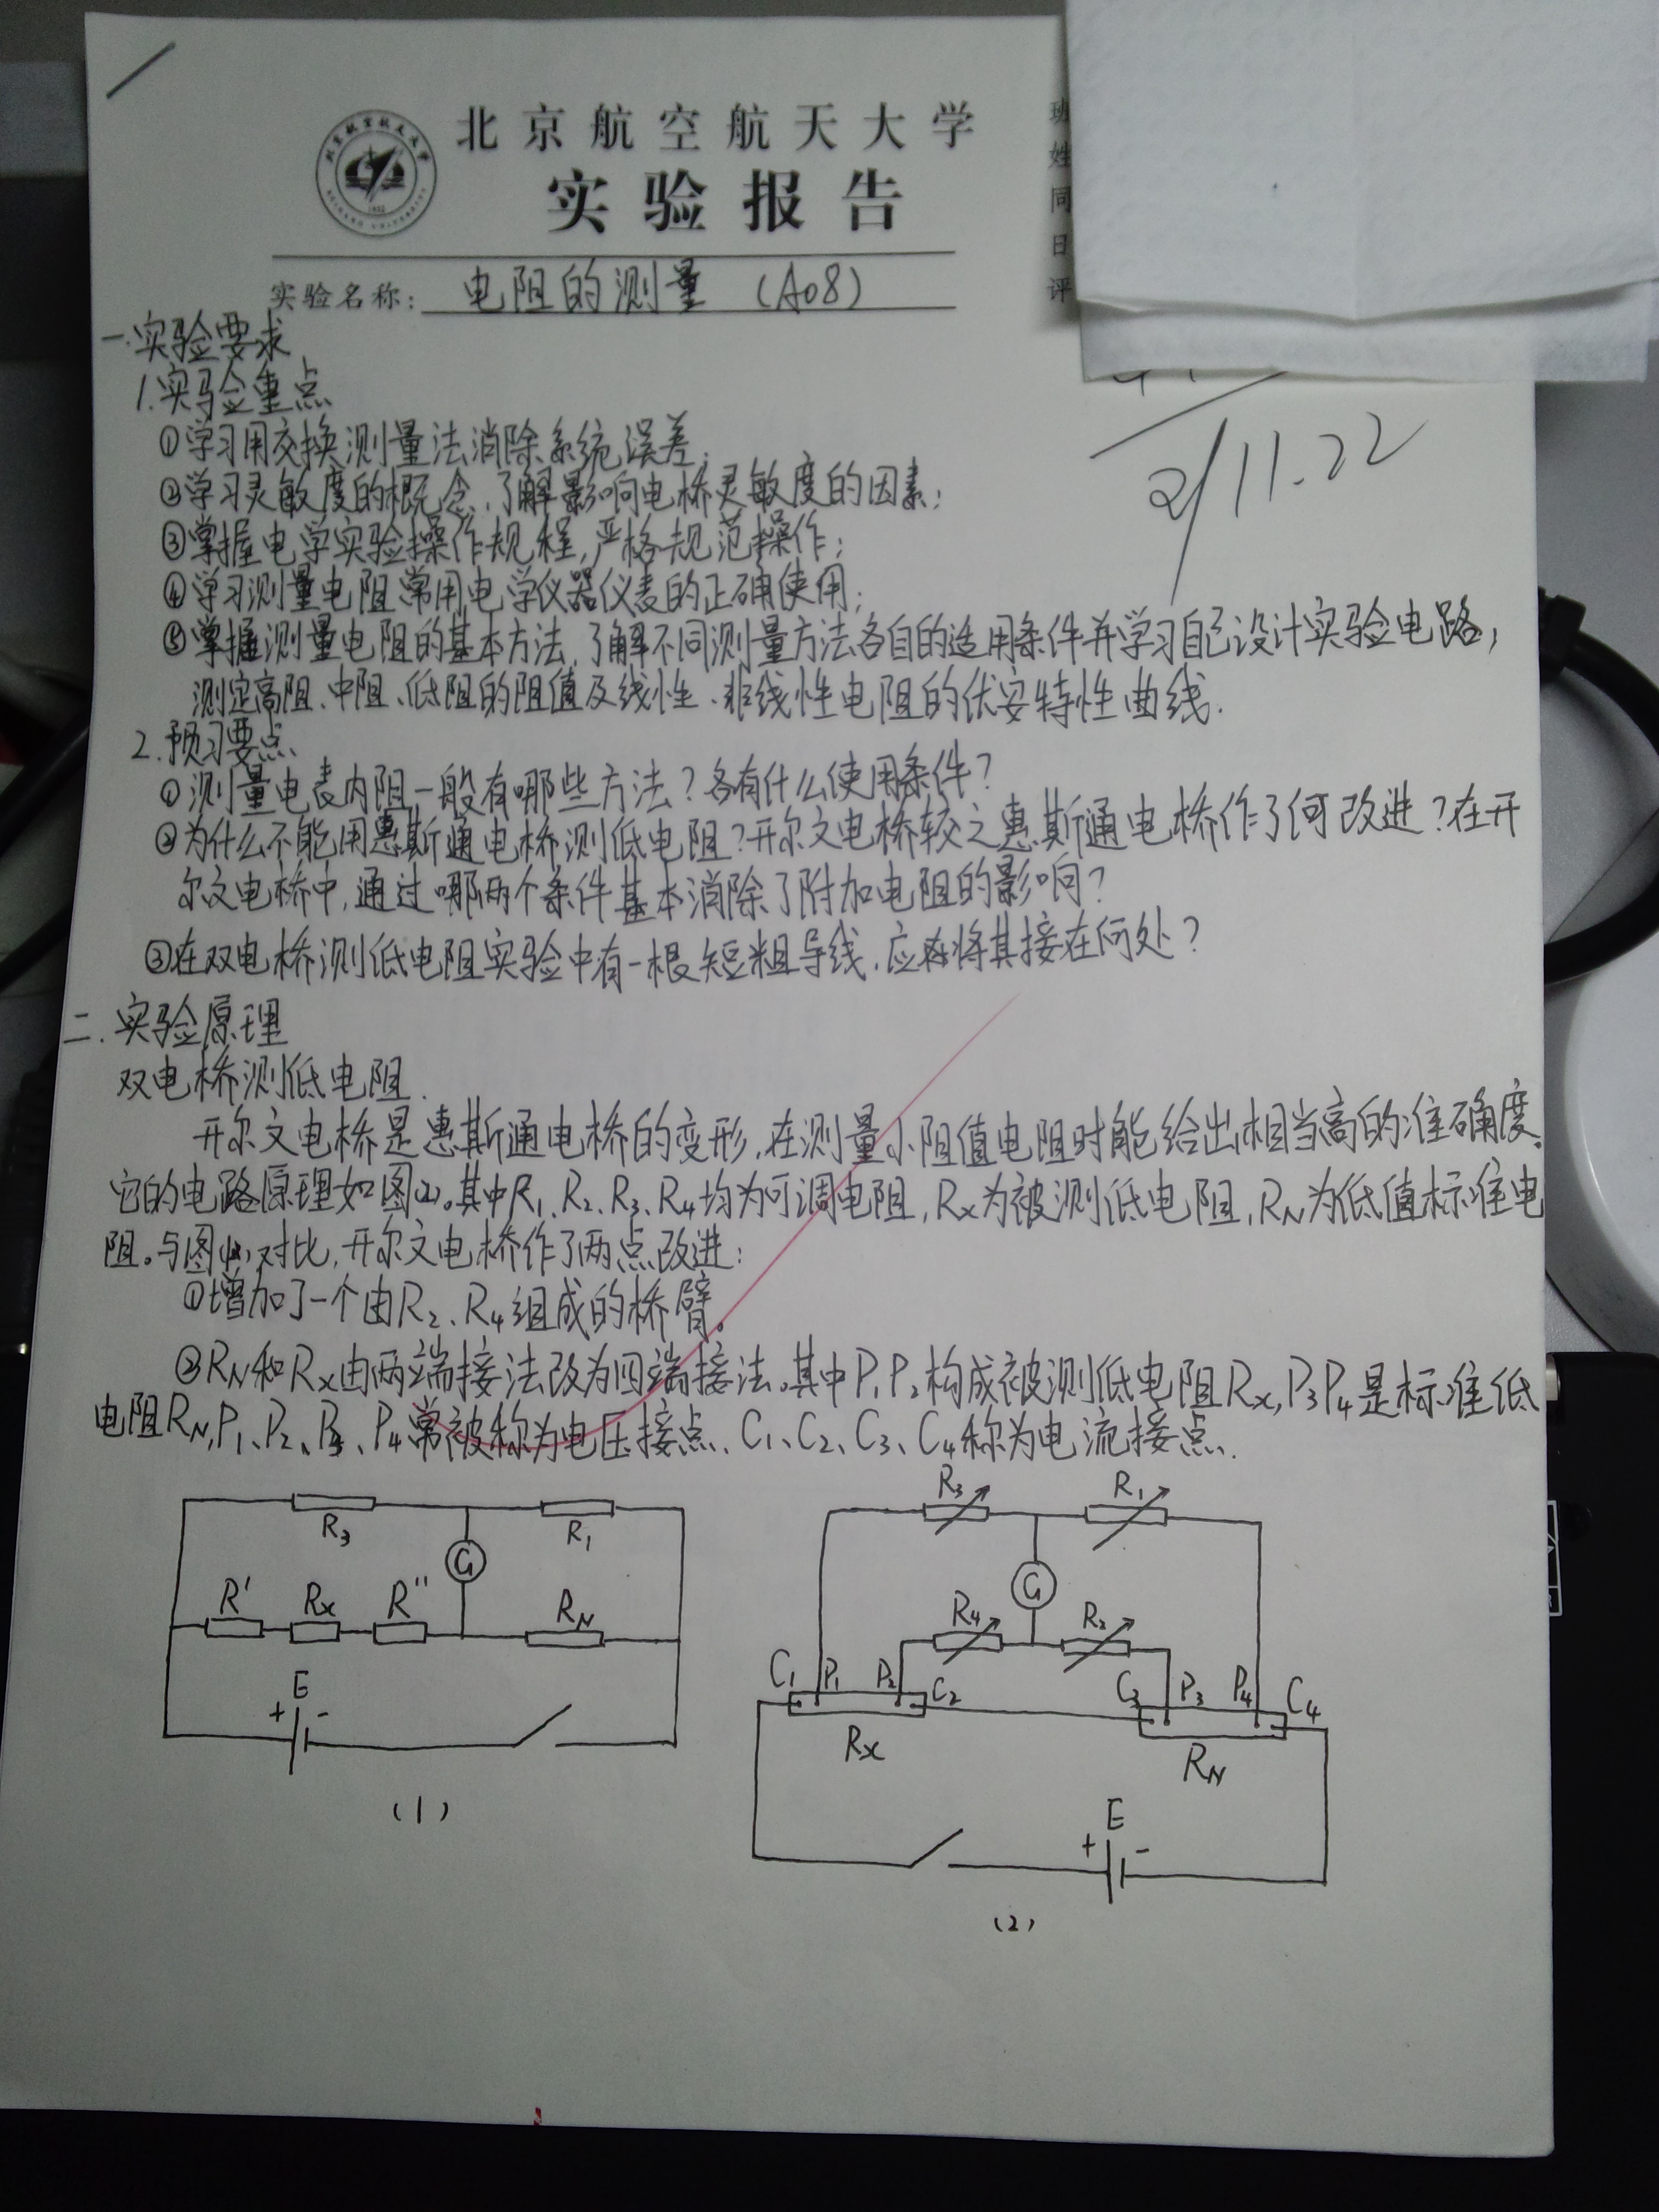 北京航空航天大学
实验报告
班
姓
同
日
评
实验名称: 电阻的测量 (A08)
一.实验要求
1.实验重点
①学习用交换测量法消除系统误差;
②学习灵敏度的概念,了解影响电桥灵敏度的因素;
③掌握电学实验操作规程,严格规范操作;
④学习测量电阻常用电学仪器仪表的正确使用;
⑤掌握测量电阻的基本方法,了解不同测量方法各自的适用条件并学习自己设计实验电路,
测定高阻、中阻、低阻的阻值及线性、非线性电阻的伏安特性曲线.
2.预习要点
①测量电表内阻一般有哪些方法?各有什么使用条件?
②为什么不能用惠斯通电桥测低电阻?开尔文电桥较之惠斯通电桥作了何改进?在开
尔文电桥中,通过哪两个条件基本消除了附加电阻的影响?
③在双电桥测低电阻实验中有一根短粗导线,应将其接在何处?
二.实验原理
双电桥测低电阻.
开尔文电桥是惠斯通电桥的变形,在测量小阻值电阻时能给出相当高的准确度。
它的电路原理如图(2)。其中R₁、R₂、R₃、R₄均为可调电阻,Rx为被测低电阻,RN为低值标准电
阻。与图(1)对比,开尔文电桥作了两点改进:
①增加了一个由R₂、R₄组成的桥臂。
②RN和Rx由两端接法改为四端接法。其中P₁P₂构成被测低电阻Rx,P₃P₄是标准低
电阻RN,P₁、P₂、P₃、P₄常被称为电压接点、C₁、C₂、C₃、C₄称为电流接点.
R₃ R₁
G
R' Rx R'' RN
E
+ -
(1)
R₃ R₁
G
R₄ R₂
C₁ P₁ P₂ C₂ C₃ P₃ P₄ C₄
Rx RN
E
+ -
(2)
11.22